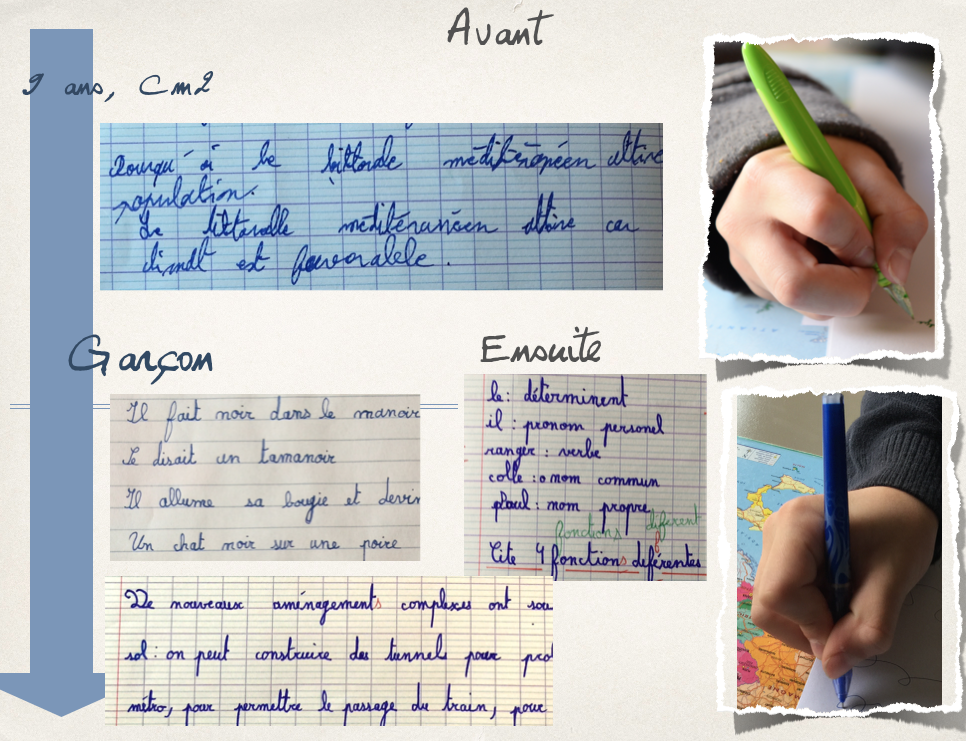 Avant
9 ans, Cm2
Pourquoi le littorale mediterranéen attire
population.
Le littoralle mediteranéen attire car
climat est favorable.
Garçon
Ensuite
Il fait noir dans le manoir
Se disait un tamanoir
Il allume sa bougie et devin
Un chat noir sur une poire
le : déterminent
il : pronom personel
ranger : verbe
colle : nom commun
Paul : nom propre
fonctions different
Cite 4 fonctions diferentes
De nouveaux aménagements complexes ont sou
sol : on peut construire des tunnels pour pro
métro, pour permettre le passage du train, pour